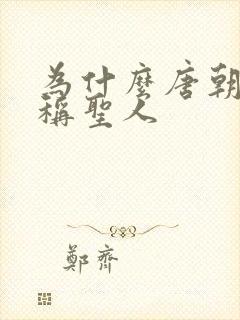 為什麼唐朝
稱聖人
鄭齊